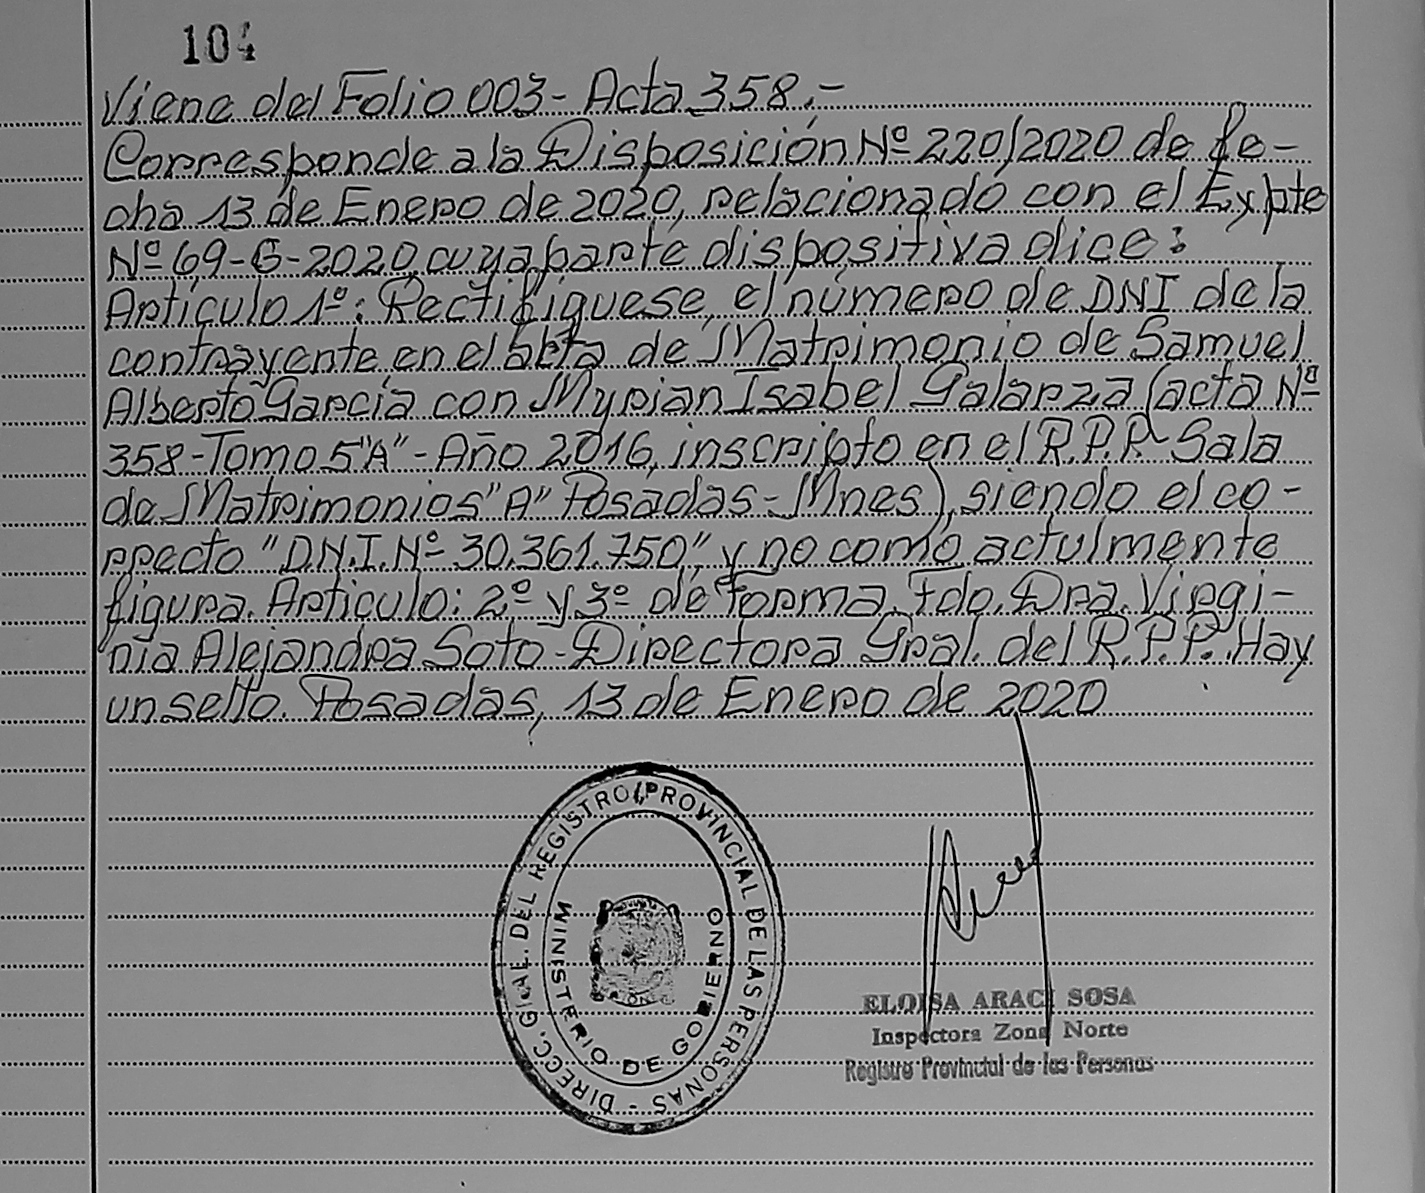 104
Viene del Folio 003- Acta 358.-
Corresponde a la Disposición Nº 220/2020 de fe-
cha 13 de Enero de 2020, relacionado con el Expte
Nº 69-G-2020, cuya parte dispositiva dice:
Artículo 1º: Rectifíquese, el número de DNI de la
contrayente en el acta de Matrimonio de Samuel
Alberto García con Myrian Isabel Galarza (acta Nº
358-Tomo 5"A"-Año 2016, inscripto en el R.P.P. Sala
de Matrimonios "A" Posadas-Mnes), siendo el co-
rrecto "D.N.I. Nº 30.361.750", y no como actulmente
figura. Articulo: 2º y 3º de Forma. Fdo. Dra. Virgi-
nia Alejandra Soto-Directora Gral. del R.P.P. Hay
un sello. Posadas, 13 de Enero de 2020
DIRECC. GRAL. DEL REGISTRO PROVINCIAL DE LAS PERSONAS -
MINISTERIO DE GOBIERNO
ELOISA ARACI SOSA
Inspectora Zona Norte
Registro Provincial de las Personas